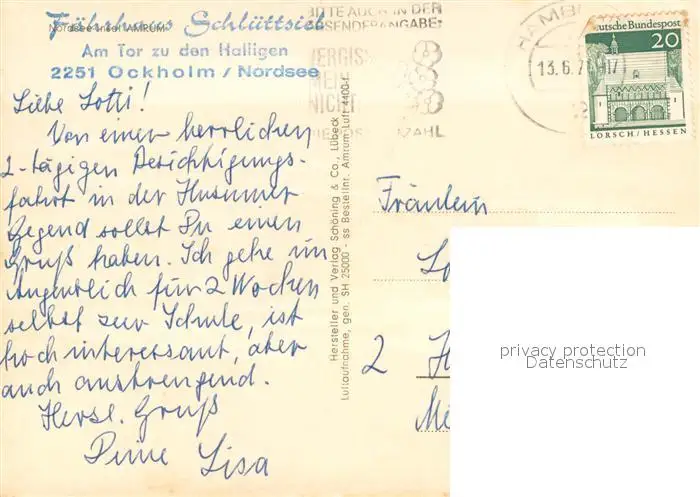 Nordsee-Insel AMRUM
Fährhaus Schlüttsiel
Am Tor zu den Halligen
2251 Ockholm / Nordsee
Liebe Lotti!
Von einer herrlichen
2-tägigen Besichtigungs-
fahrt in der Husumer
Gegend sollst Du einen
Gruß haben. Ich gehe im
Augenblick für 2 Wochen
selbst zur Schule, ist
hoch interessant, aber
auch anstrengend.
Herzl. Gruß
Deine Lisa
Hersteller und Verlag Schöning & Co., Lübeck
Luftaufnahme, gen. SH 25000 - ss Bestellnr. Amrum Luft 4400
BITTE AUCH IN DER
ABSENDERANGABE:
VERGISS
MEIN
NICHT
ZAHL
HAMB
13.6.7
17
Deutsche Bundespost
20
LORSCH/HESSEN
Fräulein
Lo
2 H
privacy protection
Datenschutz